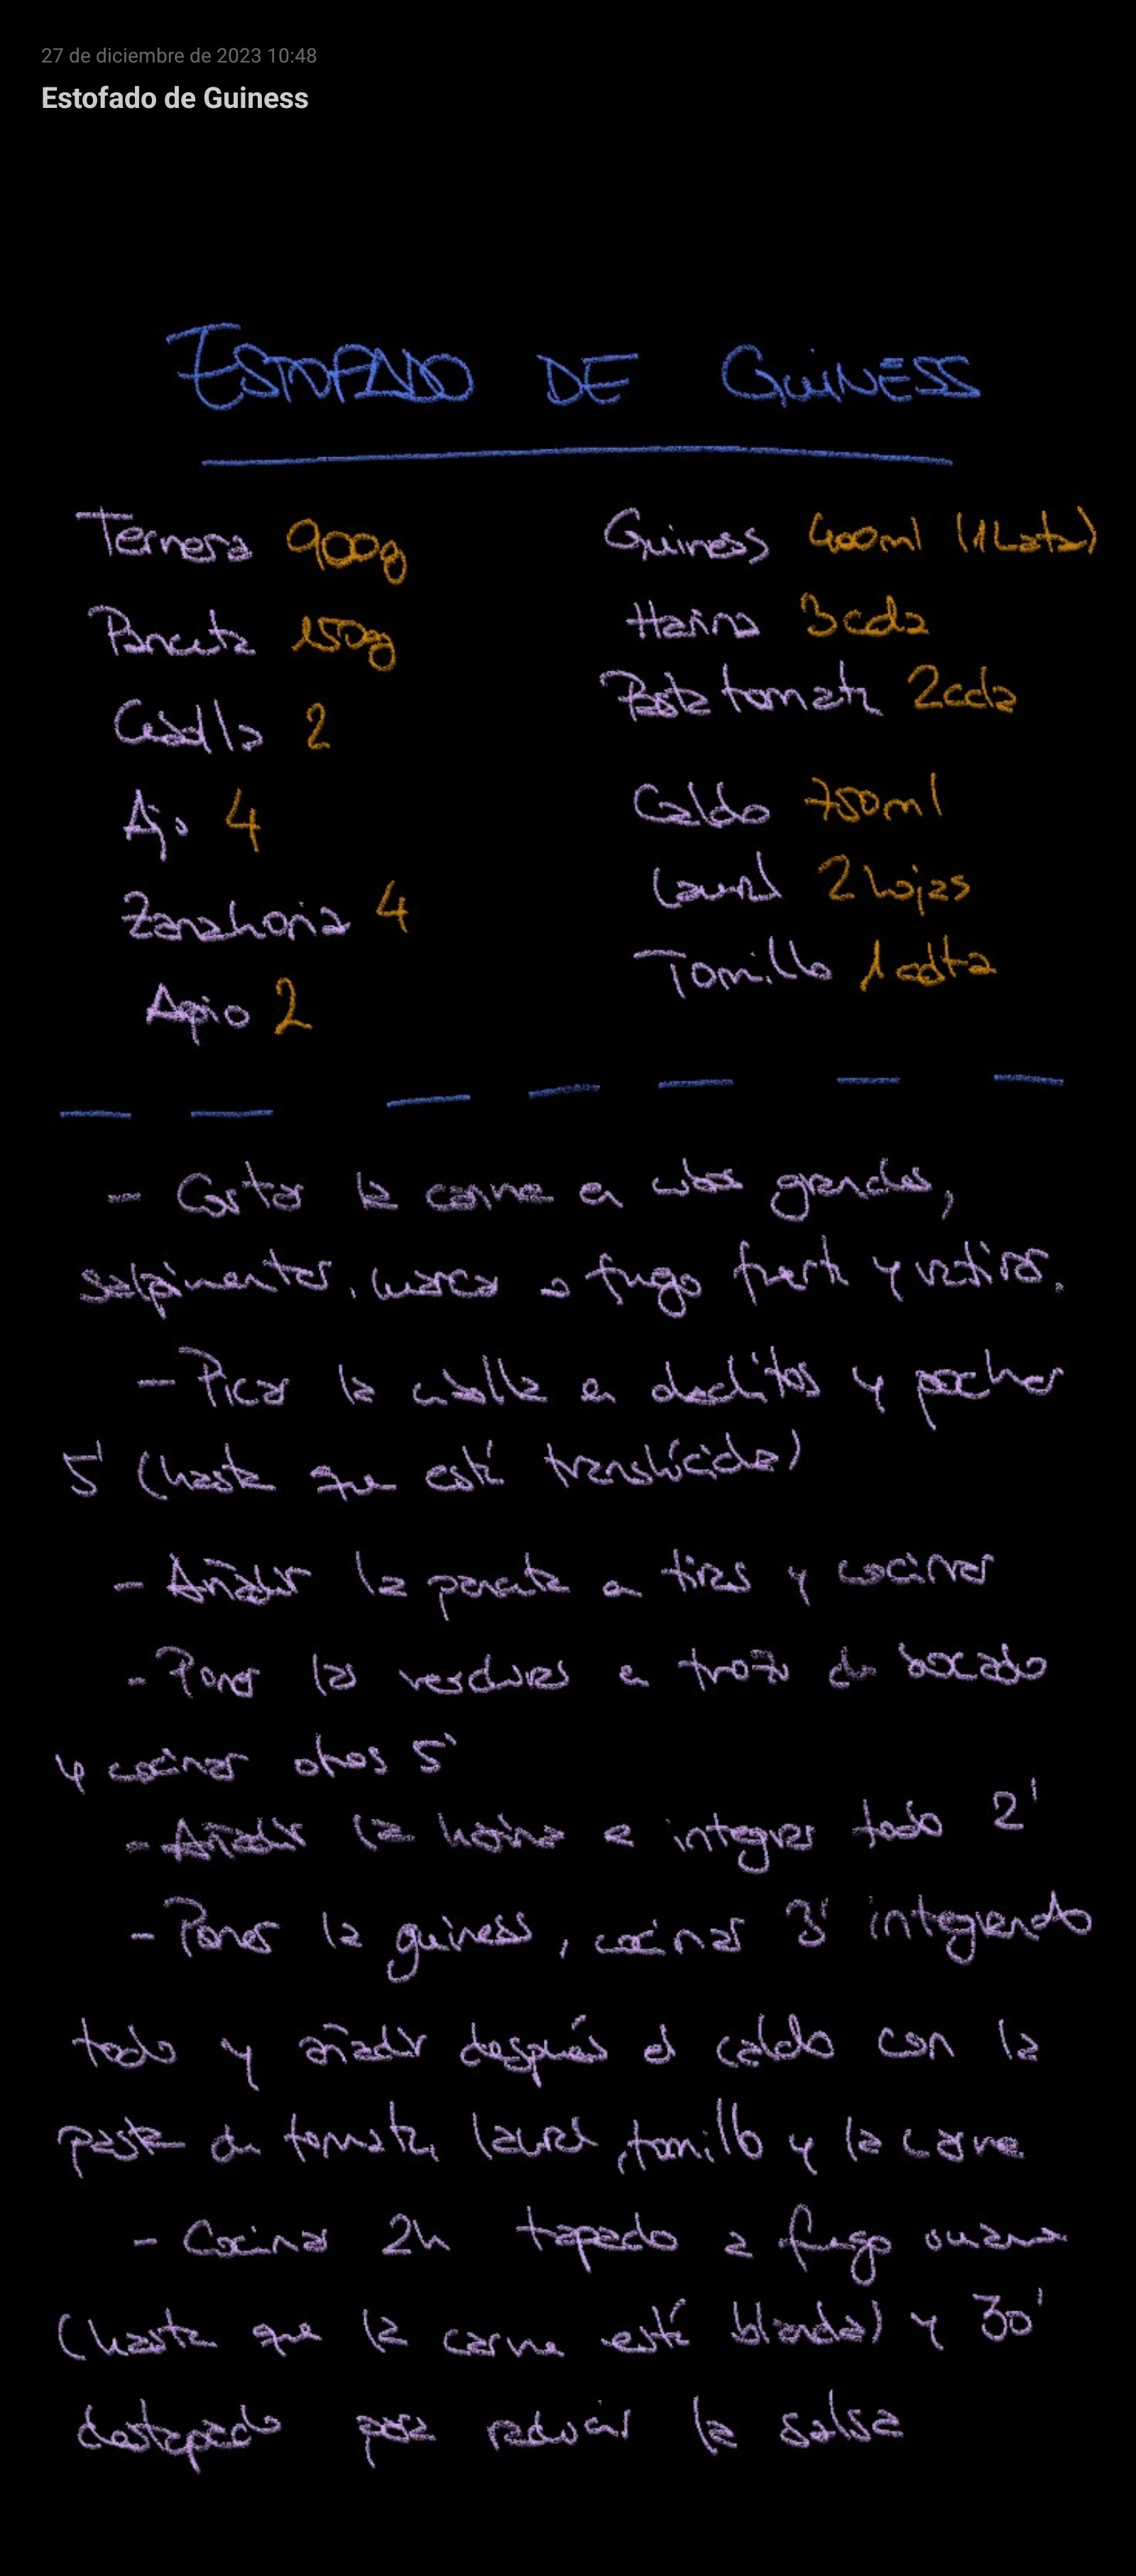 27 de diciembre de 2023 10:48
Estofado de Guiness
ESTOFADO DE GUINESS
Ternera 900g
Panceta 150g
Cebolla 2
Ajo 4
Zanahoria 4
Apio 2
Guiness 400ml (1 Lata)
Harina 3 cda
Pasta tomate 2 cda
Caldo 750ml
Laurel 2 hojas
Tomillo 1 cdta
- Cortar la carne en cubos grandes,
salpimentar, marcar a fuego fuerte y retirar.
- Picar la cebolla en daditos y pochar
5' (hasta que esté translúcida)
- Añadir la panceta en tiras y cocinar
- Poner las verduras en trozos de bocado
y cocinar otros 5'
- Añadir la harina e integrar todo 2'
- Poner la guiness, cocinar 3' integrando
todo y añadir después el caldo con la
pasta de tomate, laurel, tomillo y la carne
- Cocinar 2h tapado a fuego suave
(hasta que la carne esté blanda) y 30'
destapado para reducir la salsa